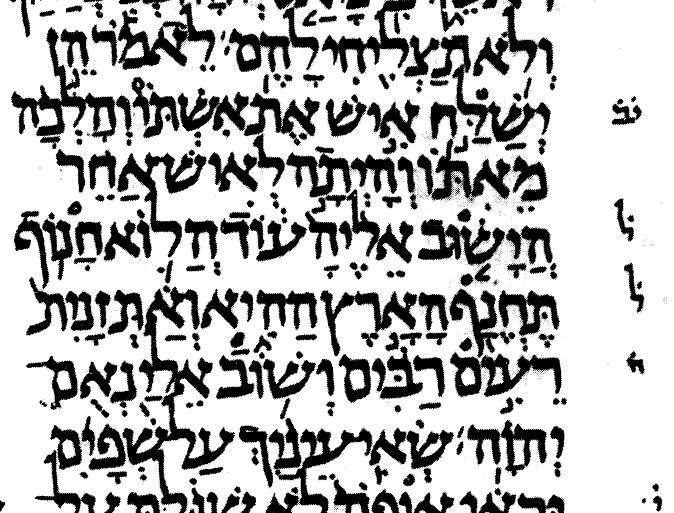 ולא תצליחי להם לאמר הן
ישלח איש את אשתו והלכה
מאתו והיתה לאיש אחר
הישוב אליה עוד הלוא חנוף
ל
תחנף הארץ ההיא ואת זנית
ל
רעים רבים ושוב אלי נאם
יהוה שאי עיניך על שפים
וראי איפה לא